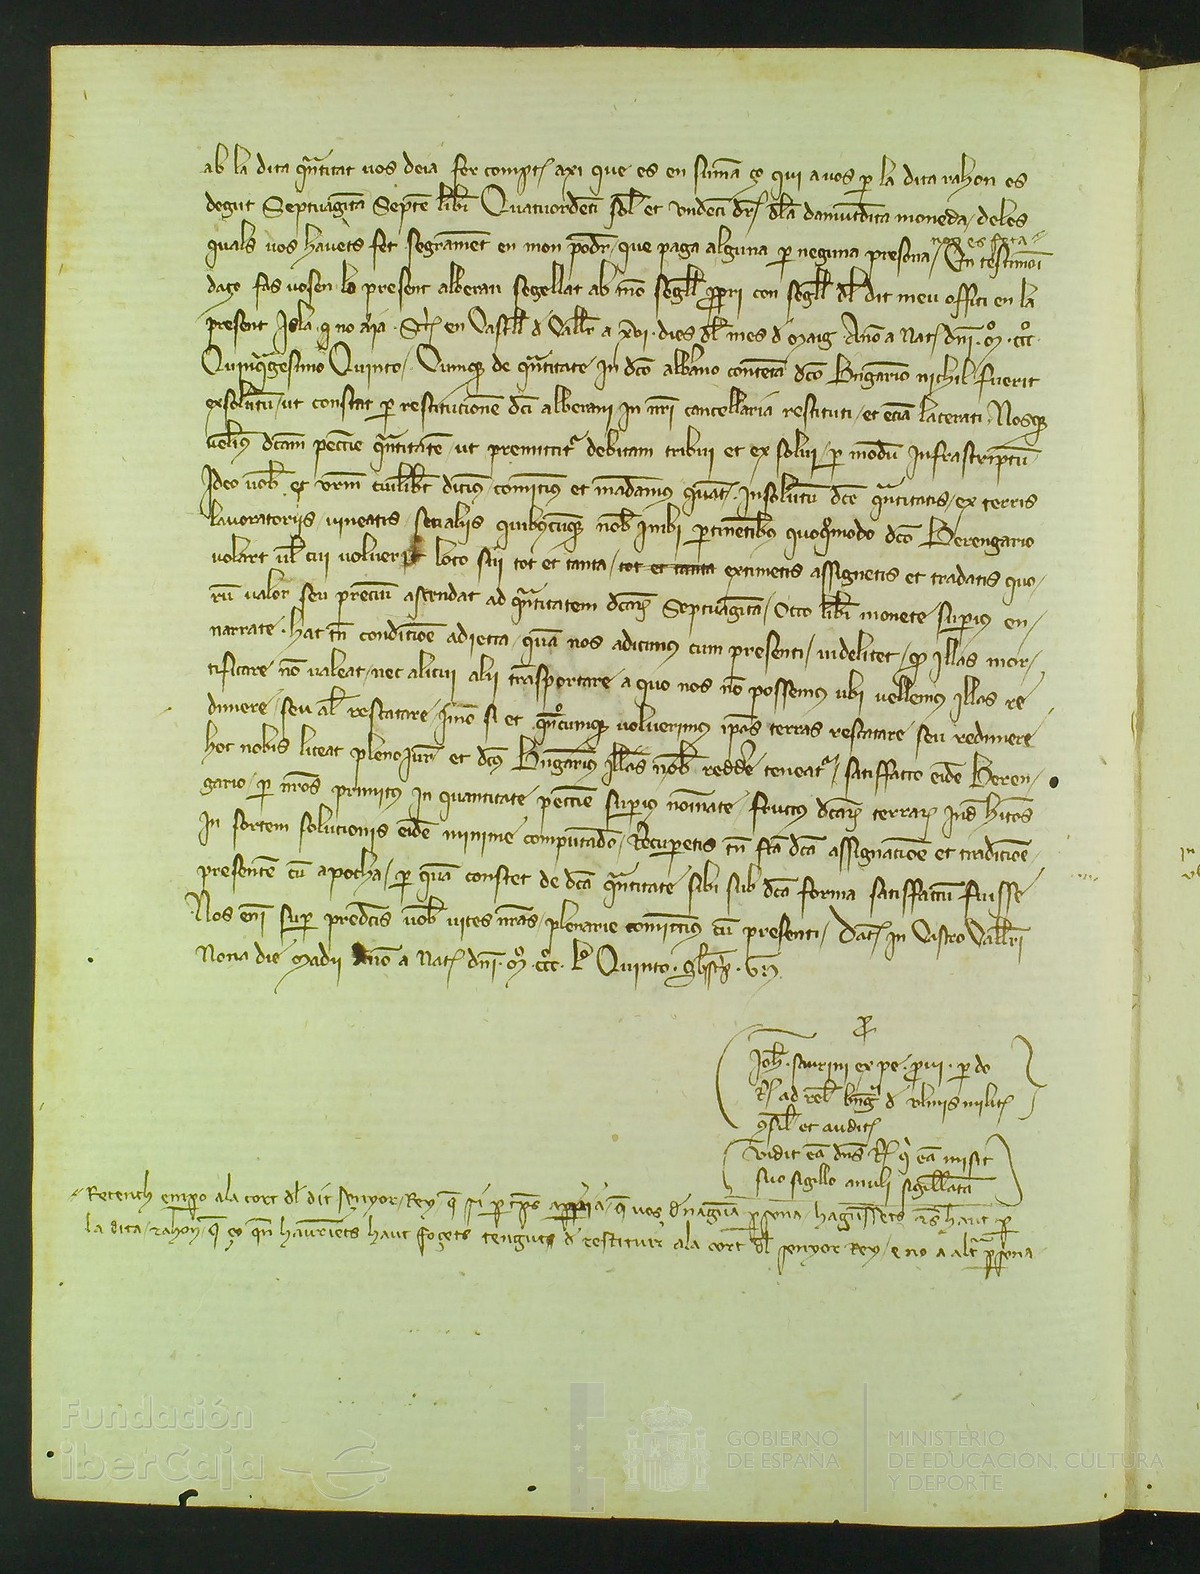 ab la dita qn̄titat vos deia fer compte axi que es en suma ço qui a vos ꝑ la dita rahon es
degut Septuaginta Septe libr̄ Quatuordeti sol̄ et undeti dr̄ dl̄a damuntdita moneda / deles
quals vos havets fet segrament en mon poder / que paga alguna ꝑ neguna presona / non es feta / En testimoni
daço fas vos en lo present albaran segellat ab mō segell propri con segell dl̄ dit meu offici en la
present Isla q̄ no aia . Scr̄ en Castell d̄ Call̄r a xvi . dies dl̄ mes d̄ Maig Año a Nat̄ dn̄i . Mº . CCCº .
Quinq̄gesimo Quinto / Cumq̄ de qn̄titate in dc̄o albarano contēta dc̄o Bn̄gario nichil fuerit
exsolutū / ut constat ꝑ restitucionē dc̄i albarani in nr̄i cancellaria restituti / et eciā lacerati . Nosq̄
velīus dc̄am peccūie qn̄titatē / ut premittitr̄ debitam tribui et exsolvi / ꝑ modū infrascriptū
Ideo vob̄ et vr̄m cuilib̄t dicim̄us comittim̄us et mandam̄us quat̄ . In solutū dc̄e qn̄titatis / ex terris
lavoratoriis / vineatis / seu aliis quibuscumq̄ nob̄ inibi ꝑtinentib̄us quoq̄modo dc̄o Berengario
volart ul̄ cui voluerit loco sui tot et tanta / tot et tanta extimetis assignetis et tradatis quo /
rū valor seu preciū ascendat ad qn̄titatem dc̄ar̄ Septuaginta / Octo libr̄ monete superius en /
narrate . hac tn̄ condicione adiecta / quā nos adicimus cum presenti / videlicet / qd̄ illas mor /
tificare nō valeat / nec alicui alii trāsportare a quo nos nō possemus ubi vellemus illas re
dimere / seu al̄ rescatare / Imō si et qn̄cumq̄ voluerimus ip̄as terras rescatare seu redimere
hoc nobis liceat pleno iur̄ et dc̄us Bn̄garius illas nob̄ redder̄e teneatr̄ / satisfacto eidē Beren /
gario / ꝑ nr̄os primitus in quantitate peccūie superius nominate / fructus dc̄ar̄ terrar̄ in̄d hitos
in sortem solucionis eidē minime computādo / Recuperetis tn̄ fc̄a dc̄a assignatione et tradicione /
presentē cū apocha / ꝑ quā constet de dc̄a qn̄titate sibi sub dc̄a forma satisfactū fuisse
Nos en̄i super predc̄tis vob̄ vices nr̄as / plenarie comittim̄us cū presenti / Dat̄ in Castro Call̄ri
Nona die Madii año a Nat̄ dn̄i . Mº . CCCº . Lº Quinto .
Joh̄ . Saurini ex pe . ꝑ do
R̄ ad rel̄ Bn̄gr̄ d̄ Ulmis milit̄
9sil̄ et audit̄
Vidit eā dn̄s R̄ q̄ eā misit
suo sigillo anuli sigillatā
Retench empero ala cort dl̄ dit senyor / Rey / q̄ si ꝑ tp̄s apparia / q̄ vos d̄ naguna persona / haguessets res haut ꝑ
la dita / rahon / q̄ ço qn̄ hauriets haut foçets tenguts d̄ restituir ala cort dl̄ senyor Rey / e no a altr̄a persona
Fundación
iberCaja
GOBIERNO
DE ESPAÑA
MINISTERIO
DE EDUCACIÓN, CULTURA
Y DEPORTE